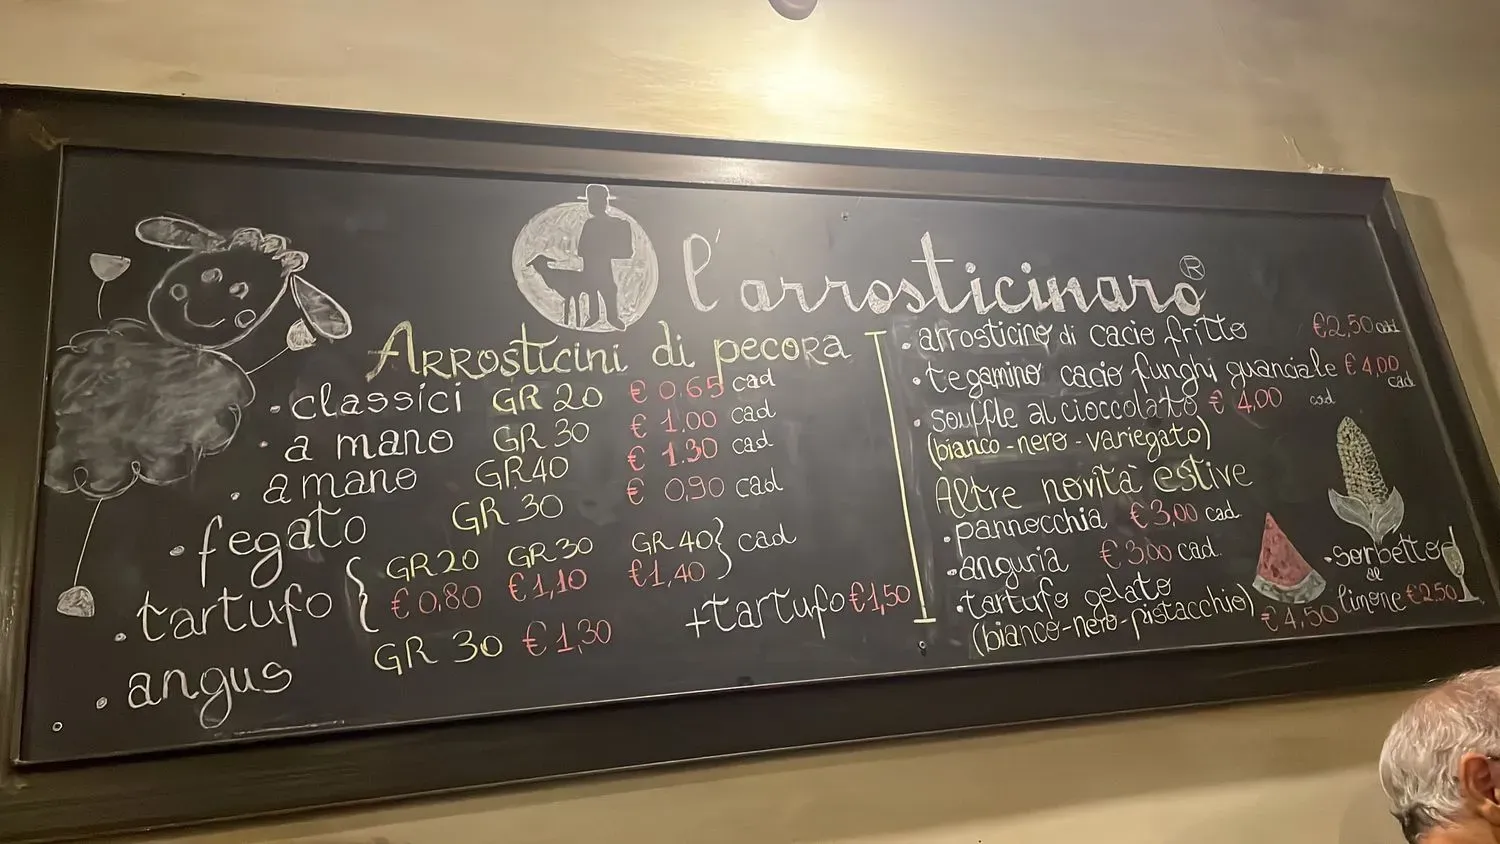 l'arrosticinaro ®
Arrosticini di pecora
• classici GR 20 € 0.65 cad
• a mano GR 30 € 1.00 cad
• a mano GR 40 € 1.30 cad
• fegato GR 30 € 0,90 cad
• tartufo { GR 20 GR 30 GR 40 } cad
€ 0,80 € 1,10 € 1,40
• angus GR 30 € 1,30
+ tartufo € 1,50
• arrosticino di cacio fritto € 2,50 cad
• tegamino cacio funghi guanciale € 4,00 cad
• souffle al cioccolato € 4,00 cad
(bianco-nero-variegato)
Altre novità estive
• pannocchia € 3,00 cad.
• anguria € 3,00 cad.
• tartufo gelato
(bianco-nero-pistacchio) € 4,50
• sorbetto
al
limone € 2.50